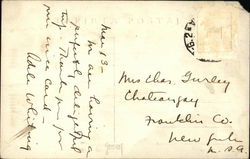 Mar 13 —
am having a
perfectly delightful
trip. Thank you for
nice card —
Mrs Chas. Gurley
Chateaugay
Franklin Co.
New York
U.S.A